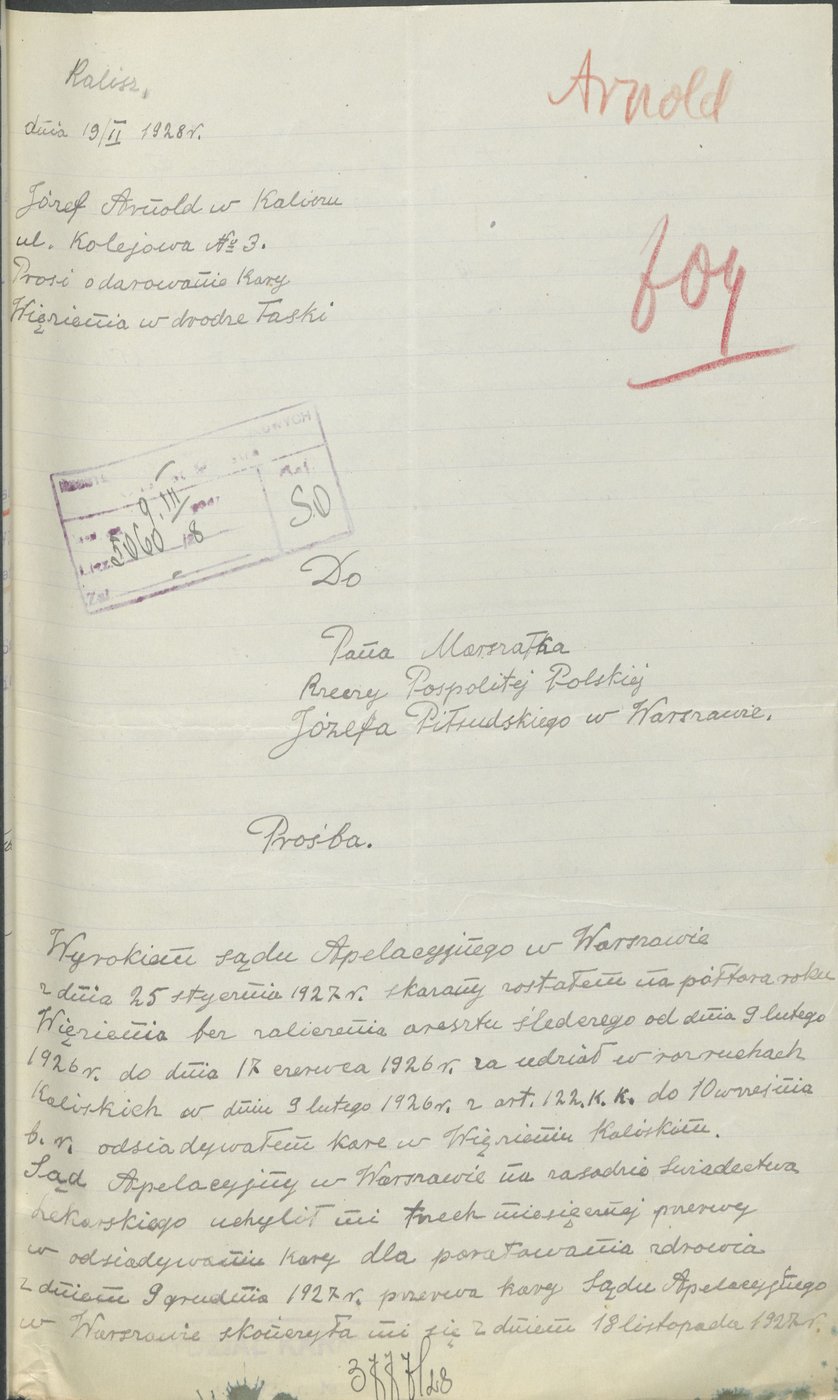 Kalisz,
dnia 19/II 1928 r.
Arnold
Józef Arnold w Kaliszu
ul. Kolejowa № 3.
Prosi o darowanie kary
Więzienia w drodze łaski
9.III
5060 8
Ref.
50
Zał
Do
Pana Marszałka
Rzeczy Pospolitej Polskiej
Józefa Piłsudskiego w Warszawie.
Prośba.
Wyrokiem sądu Apelacyjnego w Warszawie
z dnia 25 stycznia 1927 r. skazany zostałem na półtora roku
Więzienia bez zaliczenia aresztu śledczego od dnia 9 lutego
1926 r. do dnia 17 czerwca 1926 r. za udział w rozruchach
Kaliskich w dniu 9 lutego 1926 r. z art. 122. K. K. do 10 wrzejnia
b. r. odsiadywałem kare w Więzieniu Kaliskim.
Sąd Apelacyjny w Warszawie na zasadzie świadectwa
Lekarskiego uchylił mi trzech miesięcznej przerwy
w odsiadywaniu kary dla poratowania zdrowia
z dniem 9 grudnia 1927 r. przerwa kary Sądu Apelacyjnego
w Warszawie skończyła mi się z dniem 18 listopada 1927 r.
3777/28